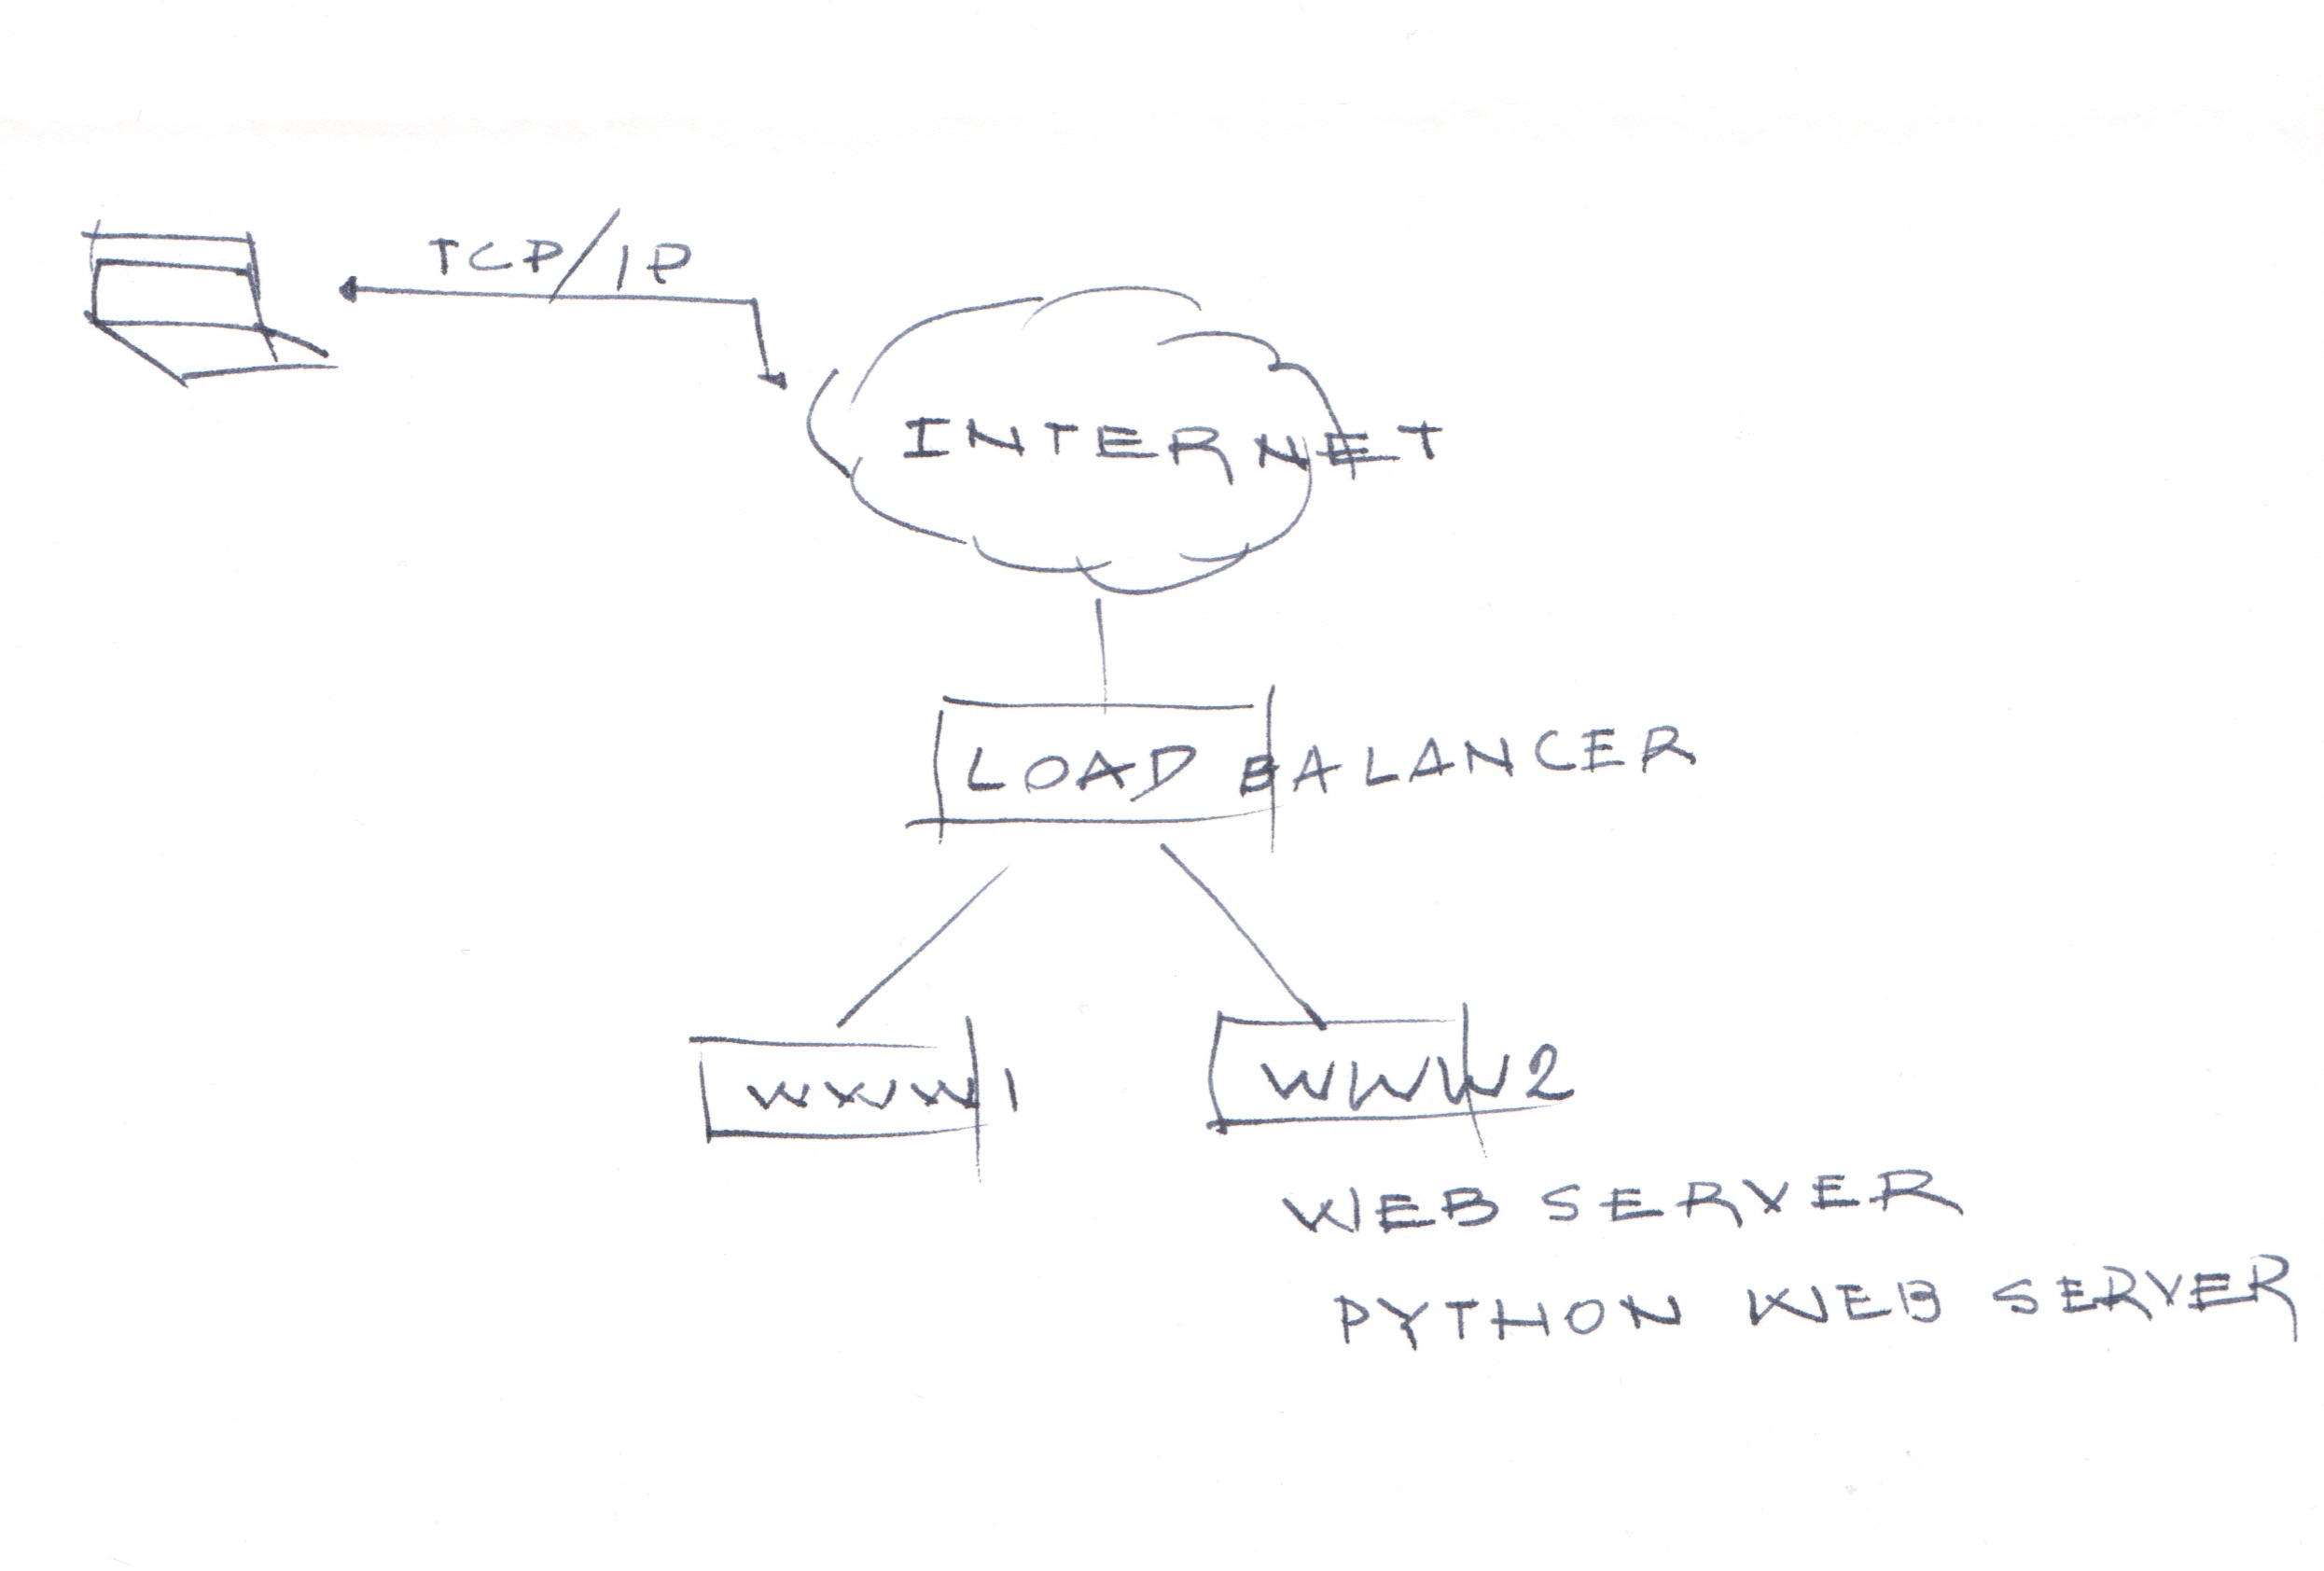 TCP/IP
INTERNET
LOAD BALANCER
WWW1
WWW2
WEB SERVER
PYTHON WEB SERVER